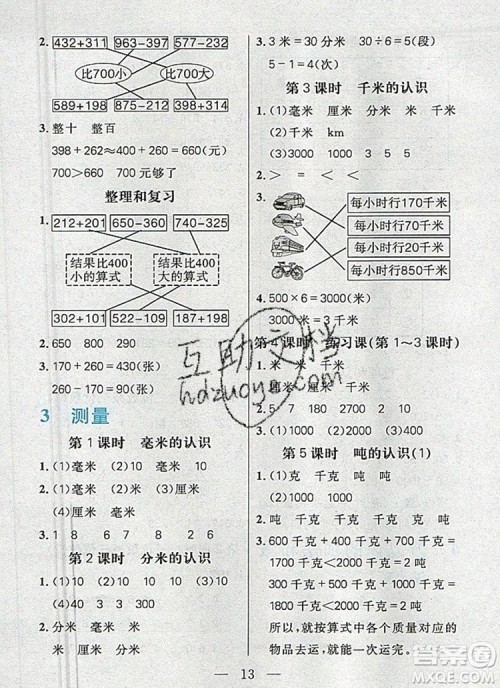 2. 432+311 963-397 577-232
比700小 比700大
589+198 865-211 398+314
3. 整十 整百
398+262≈400+300=700(元)
700>660 700元够了
整理和复习
1. 212+201 650-360 740-325
结果比400
小的算式
结果比400
大的算式
302+101 187+198
2. 650 800 290
3. 170+260=430(张)
260-170=90(张)
3 测量
第1课时 毫米的认识
1. (1)毫米 (2)10 毫米 10
2. (1)厘米 (2)毫米 (3)毫米 (4)厘米
(5)毫米
3. 1 8 6 7 8 8
第2课时 分米的认识
1. (1)10 10 10 100 (2)10
(4)3 3 30
2. 分米 毫米 米
米 厘米 分米
3. 3米=30分米 30÷6=5(段)
5-1=4(次)
第3课时 千米的认识
1. (1)毫米 厘米 分米 米 千米
(2)千米 km
(3)3000 3 5 5
2. > = < <
3. 每小时行170千米
每小时行70千米
每小时行20千米
每小时行850千米
4. 500×6=3000(米)
3000米=3千米
第4课时 练习课(第1~3课时)
1. 厘米 厘米 千米
2. 5 7 180 2700 2 6
3. (1)2000 (2)9 (3)4
第5课时 吨的认识(1)
1. (1)克 千克 吨 吨
(2)1000 1000
2. 吨 千克 克 吨 千克 吨
3. 600千克+400千克+800千克=
1800千克<2000千克=2吨
700千克+500千克+600千克=
1800千克<2000千克=2吨
所以,就按算式中各个质量对应的
物品去运,能一次运完。
13
互助文档
hdzuoye.com
答案圈
MXQE.COM